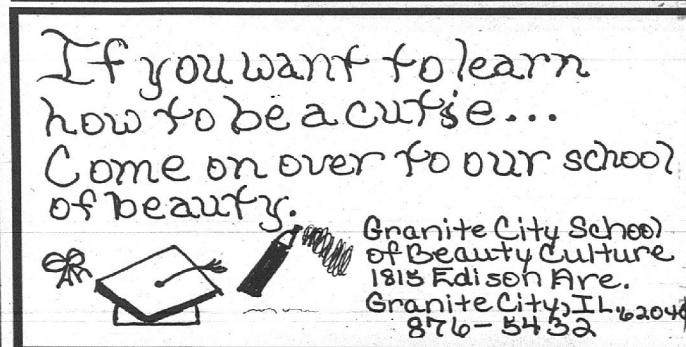 If you want to learn
how to be a cutsie...
Come on over to our school
of beauty.
Granite City School
of Beauty Culture
1815 Edison Are.
Granite City, IL.
876-5432